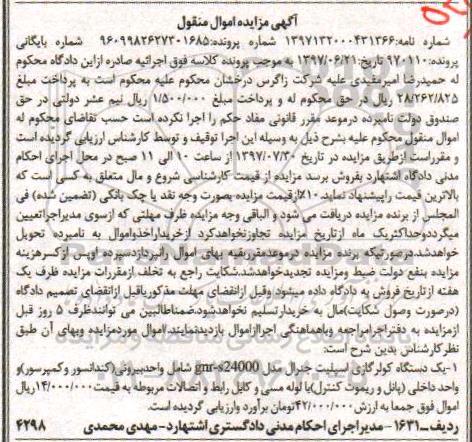 آگهی مزایده اموال منقول
شماره نامه:۱۳۹۷۱۳۲۰۰۰۴۳۱۳۶۶ شماره پرونده:۹۶۰۹۹۸۲۶۲۷۳۰۱۶۸۵ شماره بایگانی
پرونده:۹۷۰۱۱۰ تاریخ:۱۳۹۷/۰۶/۲۱ به موجب پرونده کلاسه فوق اجرائیه صادره ازاین دادگاه محکوم
له حمیدرضا امیرمفیدی علیه شرکت زاگرس درخشان محکوم علیه محکوم است به پرداخت مبلغ
۲۸/۲۶۲/۸۲۵ ریال در حق محکوم له و پرداخت مبلغ ۱/۵۰۰/۰۰۰ ریال نیم عشر دولتی در حق
صندوق دولت نامبرده درموعد مقرر قانونی مفاد حکم را اجرا نکرده است حسب تقاضای محکوم له
اموال منقول محکوم علیه بشرح ذیل به وسیله این اجرا توقیف و توسط کارشناس ارزیابی گردیده است
و مقرراست ازطریق مزایده در تاریخ ۱۳۹۷/۰۷/۳۰ از ساعت ۱۰ الی ۱۱ صبح در محل اجرای احکام
مدنی دادگاه اشتهارد بفروش برسد مزایده از قیمت کارشناسی شروع و مال متعلق به کسی است که
بالاترین قیمت راپیشنهاد نماید.۱۰٪ازقیمت مزایده بصورت وجه نقد یا چک بانکی (تضمین شده) فی
المجلس از برنده مزایده دریافت می شود و الباقی وجه مزایده ظرف مهلتی که ازسوی مدیراجراتعیین
میگرددوحداکثریک ماه ازتاریخ مزایده تجاوزنخواهدکرد ازخریداراخذواموال به نامبرده تحویل
خواهدشد.درصورتیکه برنده مزایده درموعدمقرربقیه بهای اموال رانپردازدسپرده اوپس ازکسرهزینه
مزایده بنفع دولت ضبط ومزایده تجدیدخواهدشد.شکایت راجع به تخلف ازمقررات مزایده ظرف یک
هفته ازتاریخ فروش به دادگاه داده میشود وقبل ازانقضای مهلت مذکوریاقبل ازانقضای تصمیم دادگاه
(درصورت وصول شکایت)مال به خریدارتسلیم نخواهدشود.ضمناطالبین می توانندظرف ۵ روز قبل
ازمزایده به دفتراجرامراجعه وباهماهنگی اجراازاموال بازدیدنمایند.اموال موردمزایده وبهای آن طبق
نظرکارشناس بدین شرح است:
۱-یک دستگاه کولرگازی اسپلیت جنرال مدل gnr-s24000 شامل واحدبیرونی(کندانسور وکمپرسور)و
واحد داخلی (پانل و ریموت کنترل)با لوله مسی و کابل رابط و اتصالات مربوطه به قیمت۱۴/۰۰۰/۰۰۰ریال
اموال فوق جمعا به ارزش ۴۲/۰۰۰/۰۰۰تومان برآورد وارزیابی گردیده است.
ردیف ۱۶۳۱- مدیراجرای احکام مدنی دادگستری اشتهارد- مهدی محمدی ۴۲۹۸